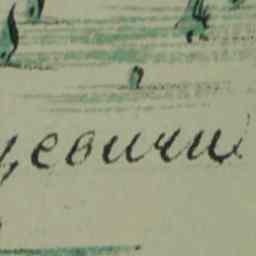 цевичи